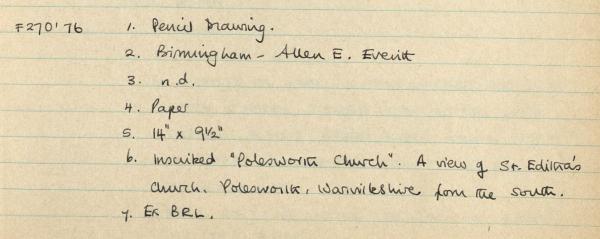 F270'76 1. Pencil Drawing.
2. Birmingham - Allen E. Everitt
3. n.d.
4. Paper
5. 14" x 9½"
6. Inscribed "Polesworth Church". A view of St. Editha's
Church, Polesworth, Warwickshire from the south.
7. Ex BRL.